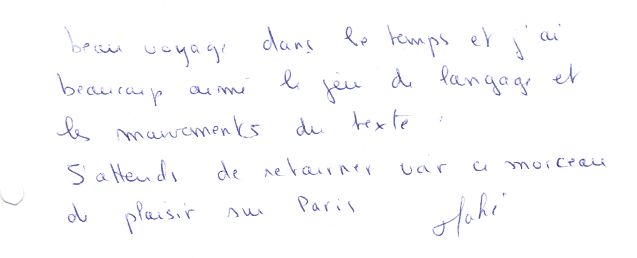 beau voyage dans le temps et j'ai
beaucoup aimé le jeu de langage et
les mouvements du texte.
J'attends de retourner voir ce morceau
de plaisir sur Paris